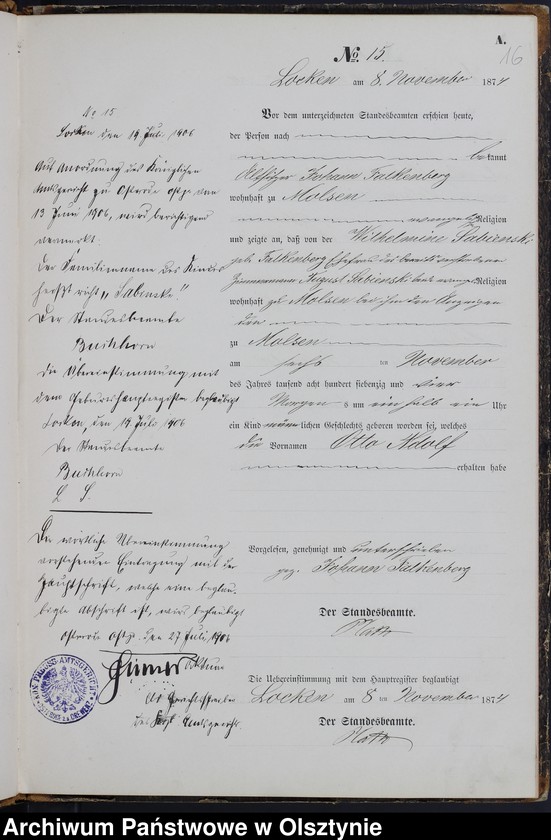 A.
16
No. 15.
Locken am 8. November 1874
Vor dem unterzeichneten Standesbeamten erschien heute,
der Person nach
bekannt
Altsitzer Johann Falkenberg
wohnhaft zu Molsen
evangel. Religion
und zeigte an, daß von der Wilhelmine Sabienski
geb. Falkenberg Ehefrau des
Zimmermann August Sabienski beide evangel. Religion
wohnhaft zu Molsen bei ihm dem Anzeigen
den
zu Molsen
am sechs ten November
des Jahres tausend acht hundert siebenzig und vier
Morgen s um ein halb ein Uhr
ein Kind männlichen Geschlechts geboren worden sei, welches
die Vornamen Otto Adolf
erhalten habe
Vorgelesen, genehmigt und unterschrieben
gez. Johann Falkenberg
Der Standesbeamte.
Die Uebereinstimmung mit dem Hauptregister beglaubigt
Locken am 8 ten November 1874
Der Standesbeamte.
No 15
Locken den 19 Juli 1906
Auf Anordnung des Königlichen
Amtsgericht zu Osterode Ostpr. vom
13 Juni 1906, wird berichtigend
vermerkt:
Der Familienname des Kindes
heißt nicht "Sabienske"
Der Standesbeamte
Buchhorn
Die Übereinstimmung mit
dem Geburtshauptregister beglaubigt
Locken, den 19 Juli 1906
Der Standesbeamte
Buchhorn
L. S.
Die wörtliche Übereinstimmung
vorstehender Eintragung mit der
Hauptschrift, welche eine beglau-
bigte Abschrift ist, wird beglaubigt
Osterode Ostpr. den 27 Juli 1906
Aktuar
als Gerichtsschreiber
des Königl. Amtsgerichts.
Archiwum Państwowe w Olsztynie